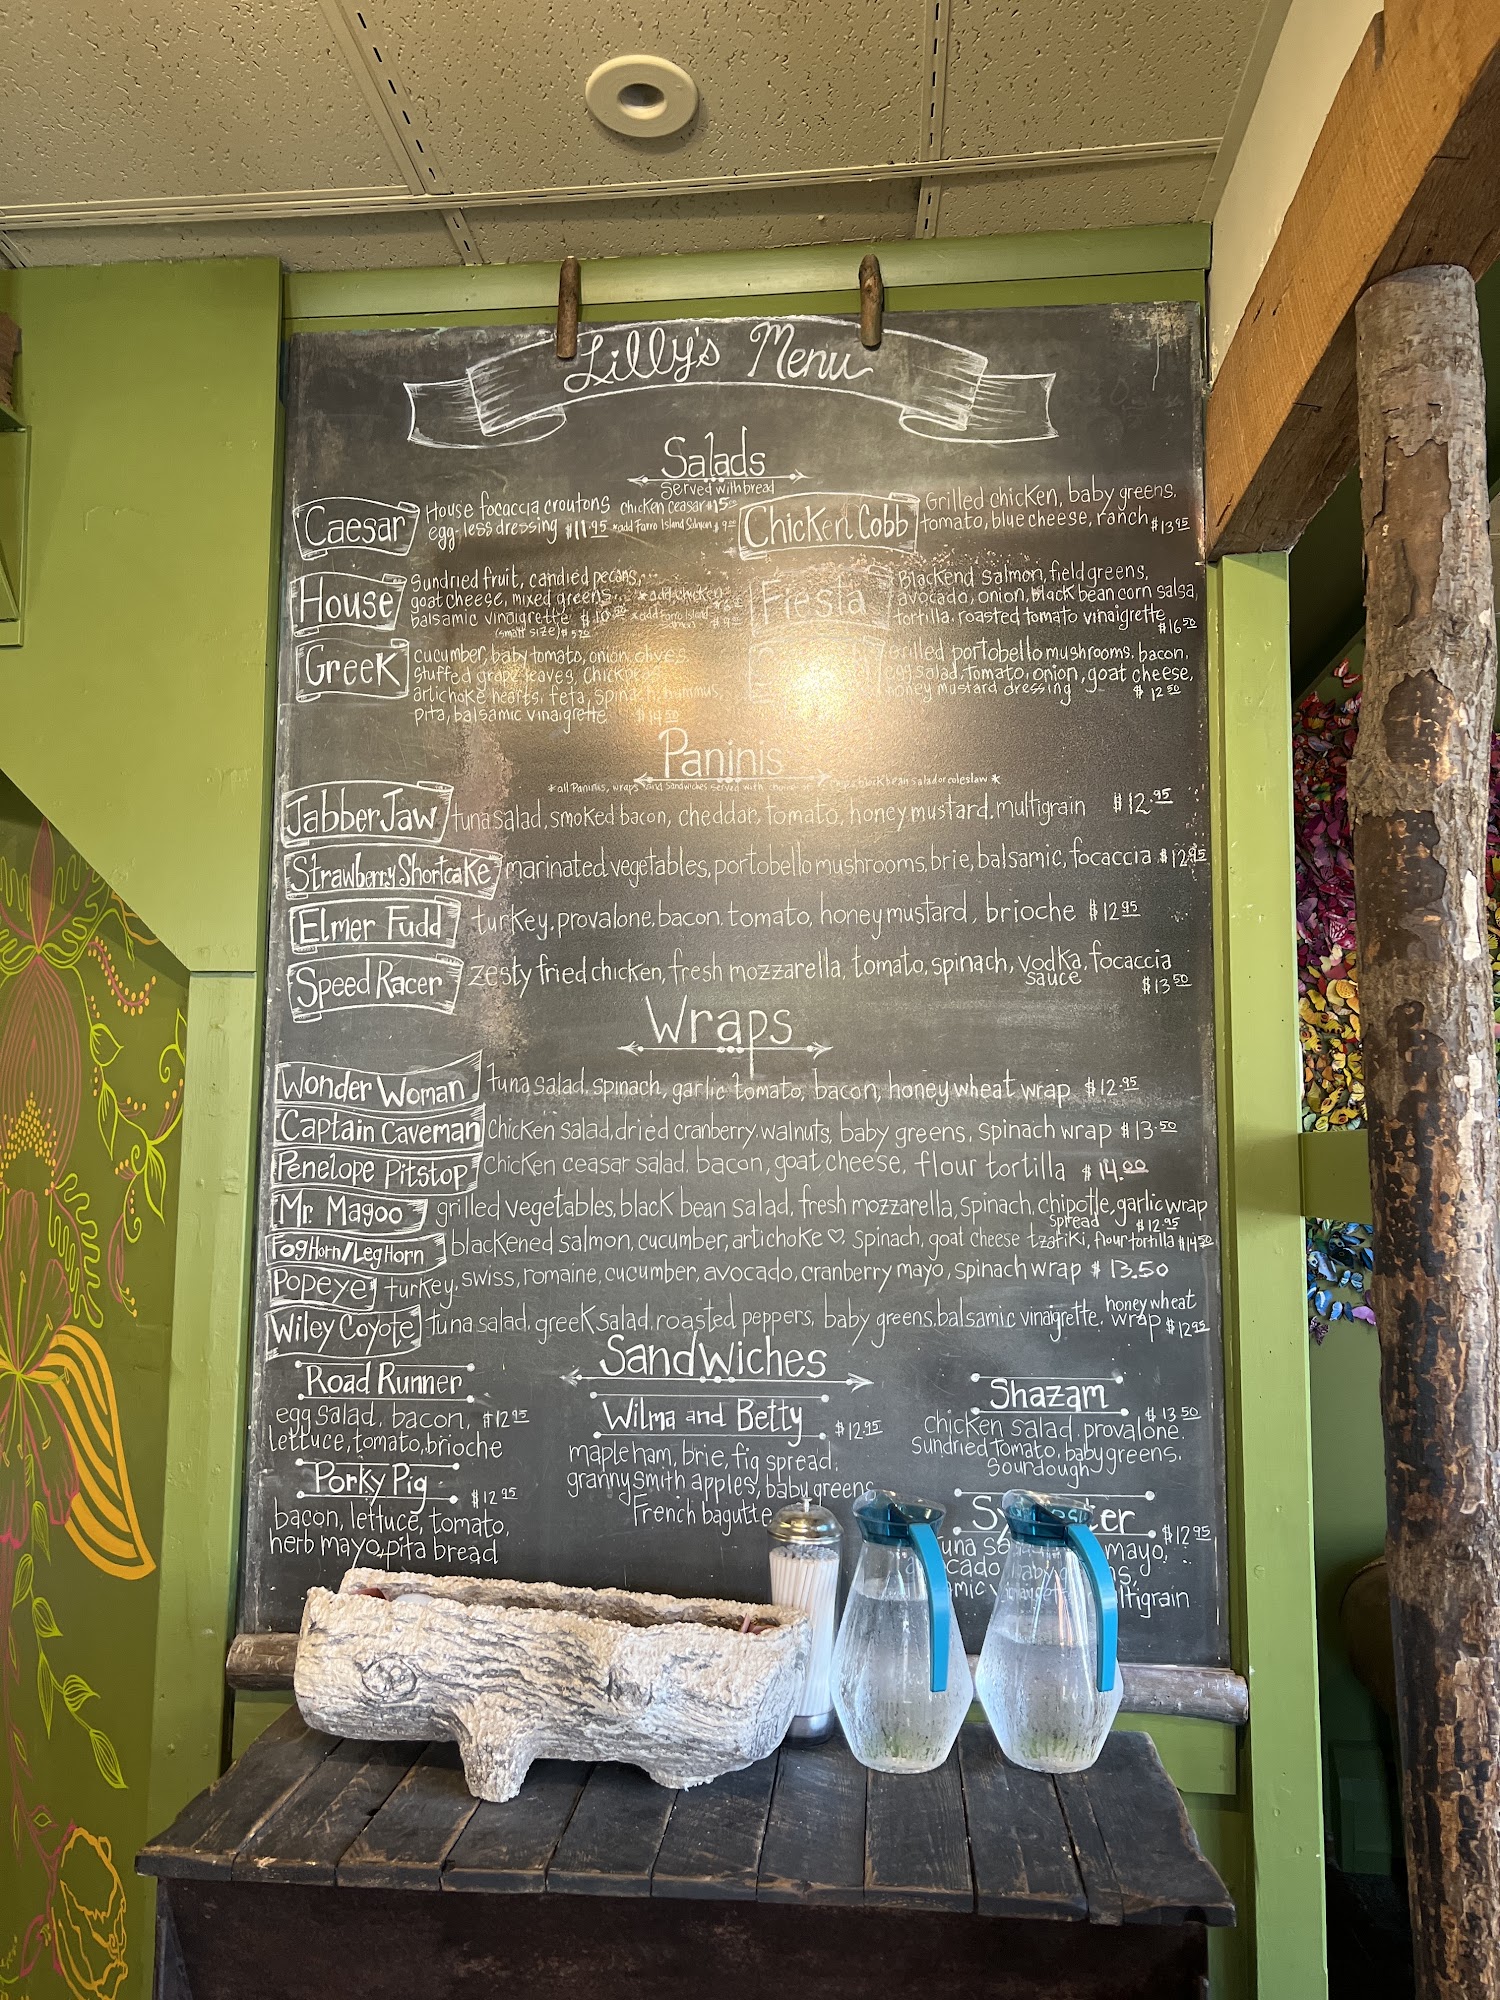 Lilly's Menu
Salads
Served with bread
Caesar
House focaccia croutons chicken ceasar $15
egg-less dressing $11.95 *add Farro Island Salmon $9
Chicken Cobb
Grilled chicken, baby greens,
tomato, blue cheese, ranch $13.95
House
Sundried fruit, candied pecans,
goat cheese, mixed greens *add chicken
balsamic vinaigrette $10 *add Farro Island
(small size) $
Fiesta
Blackend salmon, field greens,
avocado, onion, black bean corn salsa,
tortilla, roasted tomato vinaigrette
$16.50
Greek
cucumber, baby tomato, onion, olives
stuffed grape leaves, chick
artichoke hearts, feta, spinach, hummus,
pita, balsamic vinaigrette $14.50
Grilled portobello mushrooms, bacon,
egg salad, tomato, onion, goat cheese,
honey mustard dressing $12.50
Paninis
*all Paninis, wraps and sandwiches served with black bean salad or coleslaw*
Jabber Jaw tuna salad, smoked bacon, cheddar, tomato, honey mustard, multigrain $12.95
Strawberry Shortcake marinated vegetables, portobello mushrooms, brie, balsamic, focaccia $12.95
Elmer Fudd turkey, provalone, bacon, tomato, honey mustard, brioche $12.95
Speed Racer zesty fried chicken, fresh mozzarella, tomato, spinach, vodka, focaccia
sauce $13.50
Wraps
Wonder Woman tuna salad, spinach, garlic tomato, bacon, honey wheat wrap $12.95
Captain Caveman chicken salad, dried cranberry, walnuts, baby greens, spinach wrap $13.50
Penelope Pitstop chicken ceasar salad, bacon, goat cheese, flour tortilla $14.00
Mr. Magoo grilled vegetables, black bean salad, fresh mozzarella, spinach, chipotle, garlic wrap
spread $12.95
FogHorn/LegHorn blackened salmon, cucumber, artichoke ♡, spinach, goat cheese tzatiki, flour tortilla $14.50
Popeye turkey, swiss, romaine, cucumber, avocado, cranberry mayo, spinach wrap $13.50
Wiley Coyote tuna salad, greek salad, roasted peppers, baby greens, balsamic vinaigrette, honey wheat
wrap $12.95
Sandwiches
Road Runner
egg salad, bacon, $12.95
lettuce, tomato, brioche
Porky Pig
$12.95
bacon, lettuce, tomato,
herb mayo, pita bread
Wilma and Betty
$12.95
maple ham, brie, fig spread,
granny smith apples, baby greens
French bagutte
Shazam
$13.50
chicken salad, provalone,
sundried tomato, baby greens,
Sourdough
$12.95
mayo,
multigrain